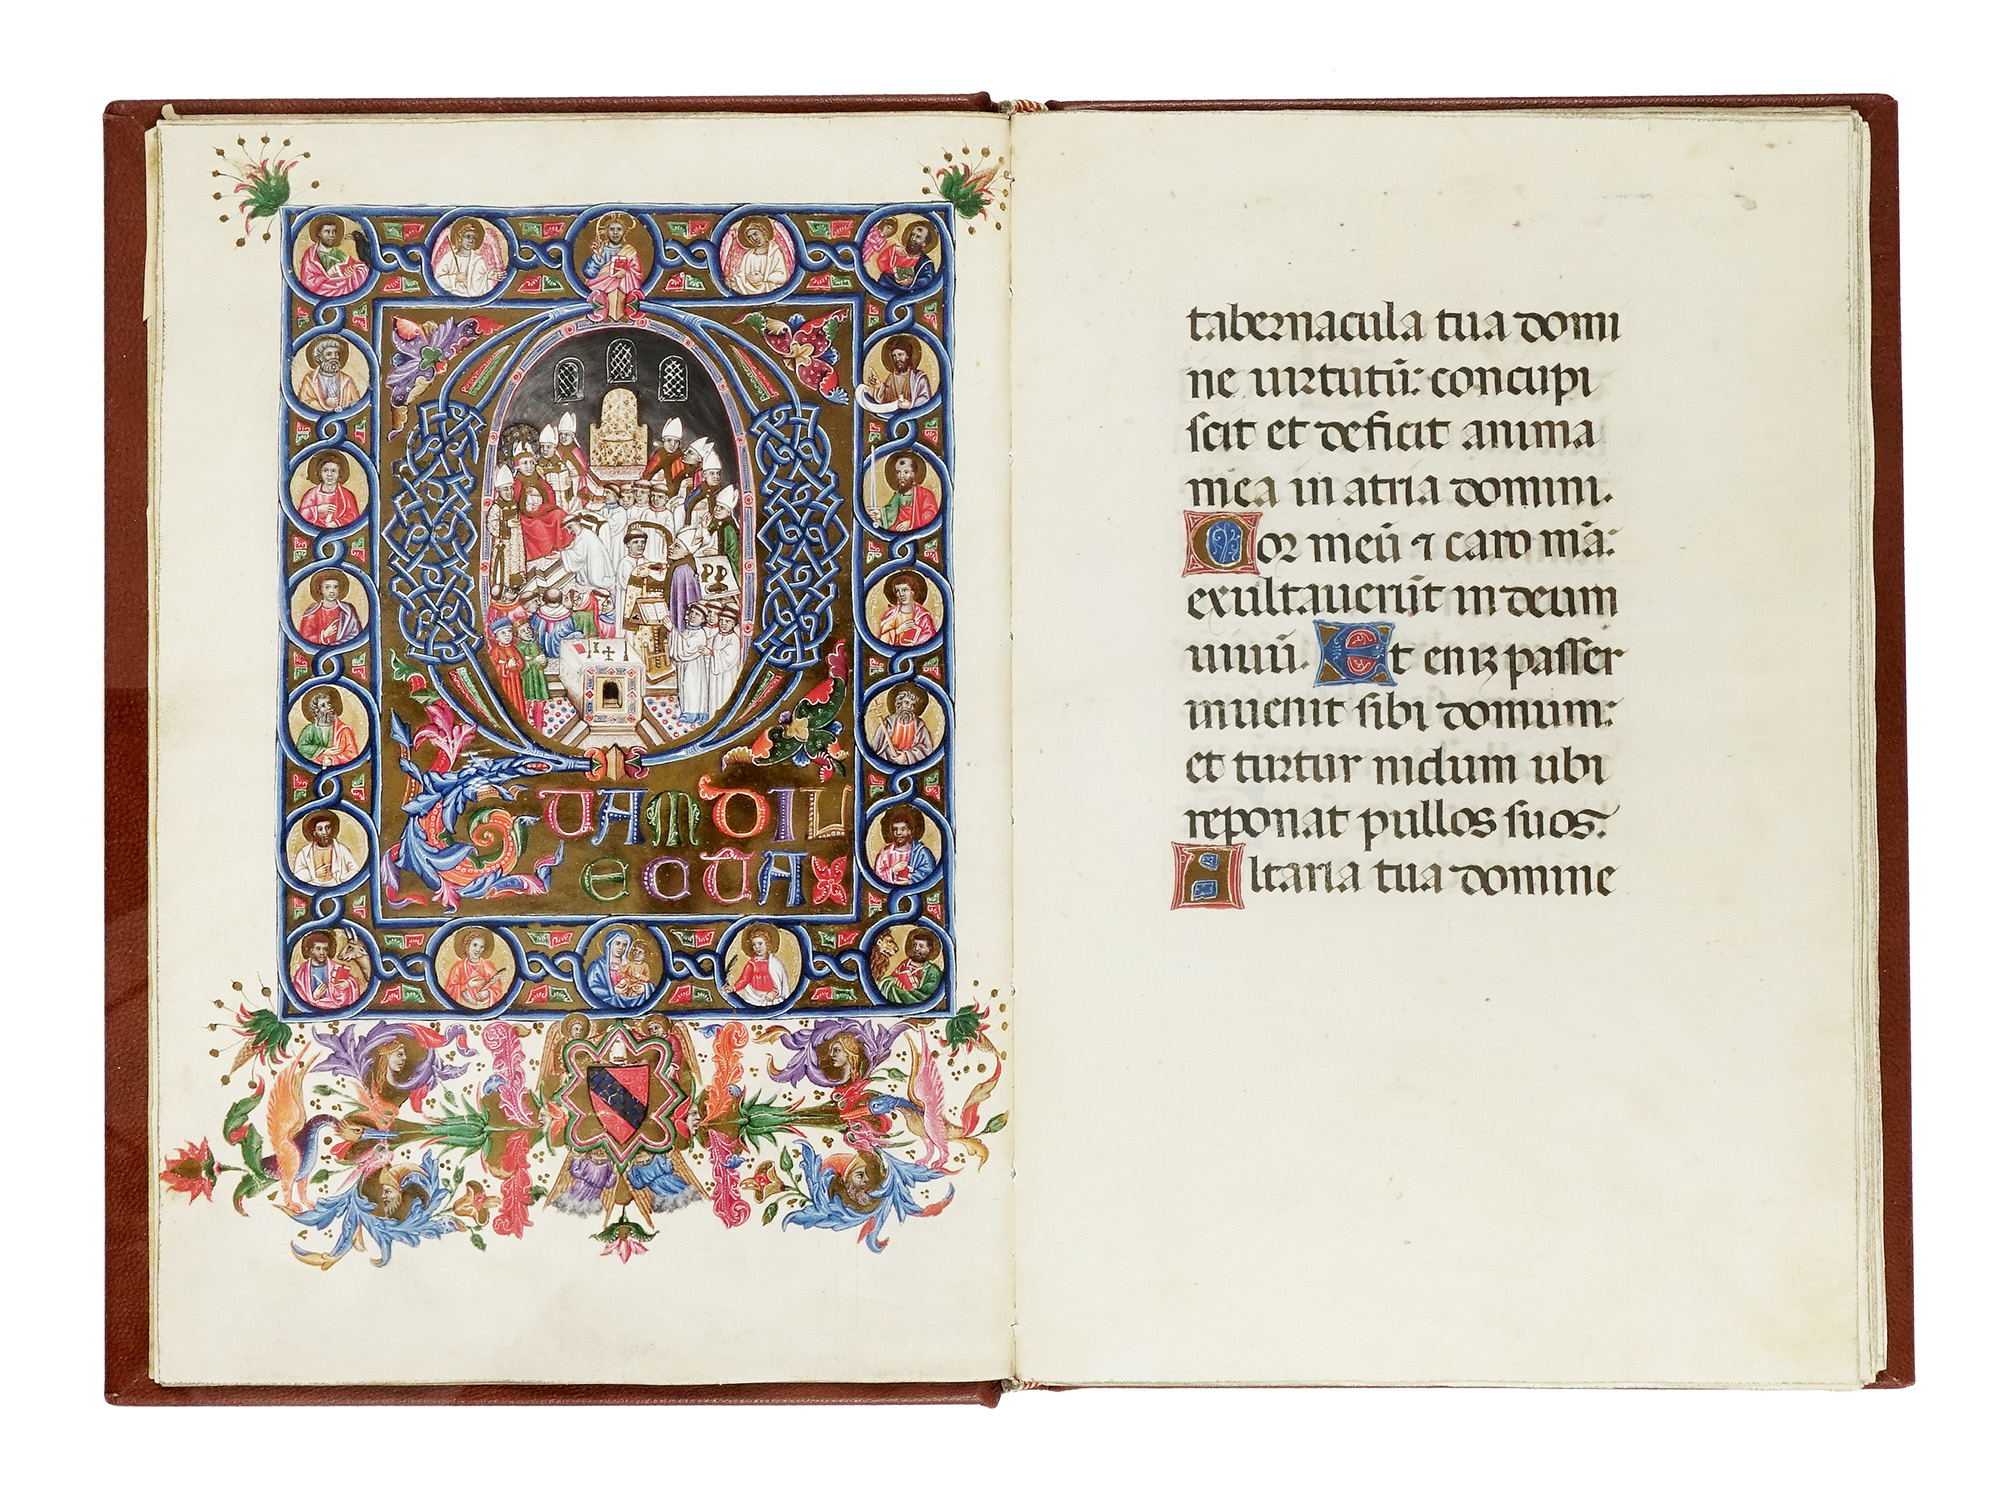 QUAM DIL
ECTA
tabernacula tua domi
ne uirtutū: concupi
ſcit et deficit anima
mea in atria domini.
Cor meū ⁊ caro mā:
exultauerūt in deum
uiuū. Et eniꝫ paſſer
inuenit ſibi domum:
et turtur nidum ubi
reponat pullos ſuos.
Altaria tua domine